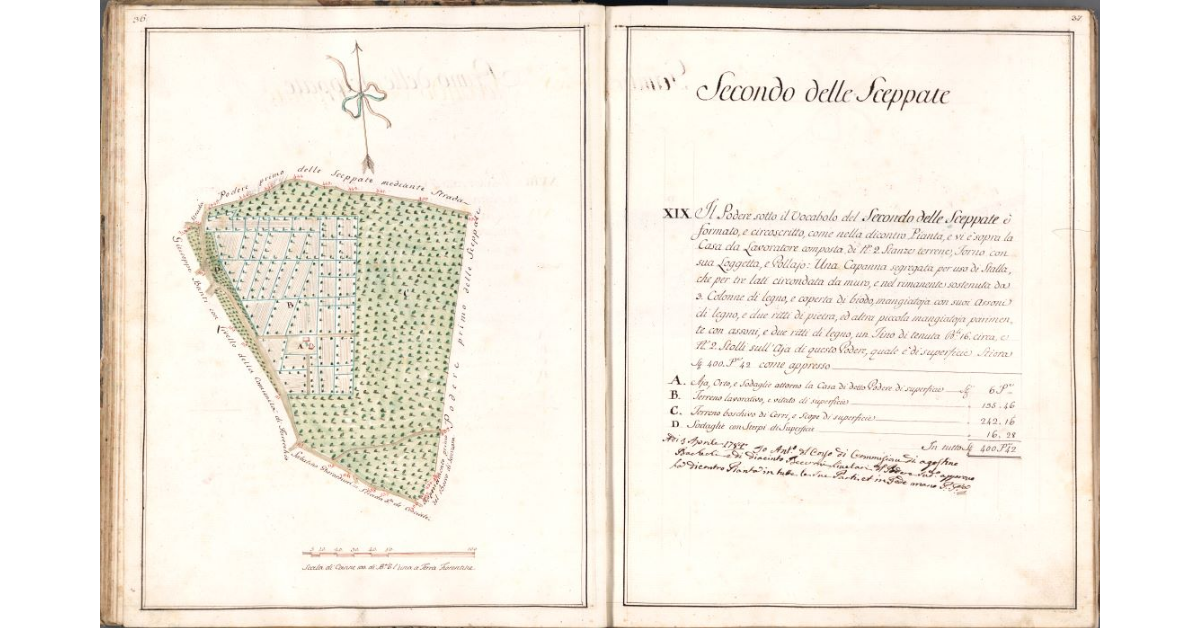 36
Podere primo delle Sceppate mediante Strada
Podere primo delle Sceppate
Giuseppe Banti
Livello della Comunità di
Strada
B.
C.
A.
Scala di Canne 100 di B.a l'una a Terra Fiorentina.
37
Secondo delle Sceppate
XIX Il Podere sotto il Vocabolo del Secondo delle Sceppate è
formato, e circoscritto, come nella dicontro Pianta, e vi è sopra la
Casa da Lavoratore composta di N.º 2 Stanze terrene, Forno con
sua Loggetta, e Pollajo: Una Capanna segregata per uso di Stalla,
che per tre lati circondata da muro, e nel rimanente sostenuta da
3. Colonne di legno, e coperta di biodo, mangiatoja con suoi Assoni
di legno, e due ritti di pietra, ed altra piccola mangiatoja parimen,
te con assoni, e due ritti di legno, un Tino di tenuta B.li 16. circa, e
N.º 2. Stolli sull'Aja di questo Podere, quale è di superficie Stiora
400. P. 42 come appresso
A. Aja, Orto, e Sodaglie attorno la Casa di detto Podere di superficie 6. P.
B. Terreno lavorativo, e vitato di superficie 135. 46
C. Terreno boschivo di Cerri, e Scope di superficie 242. 16
D. Sodaglie con Sterpi di Superficie 16. 28
In tutto 400. P. 42
Adi Aprile Io Ant.o
Bartoli e di Giacinto
la dicontro Pianta in tutte le sue Parti, et in fede mano